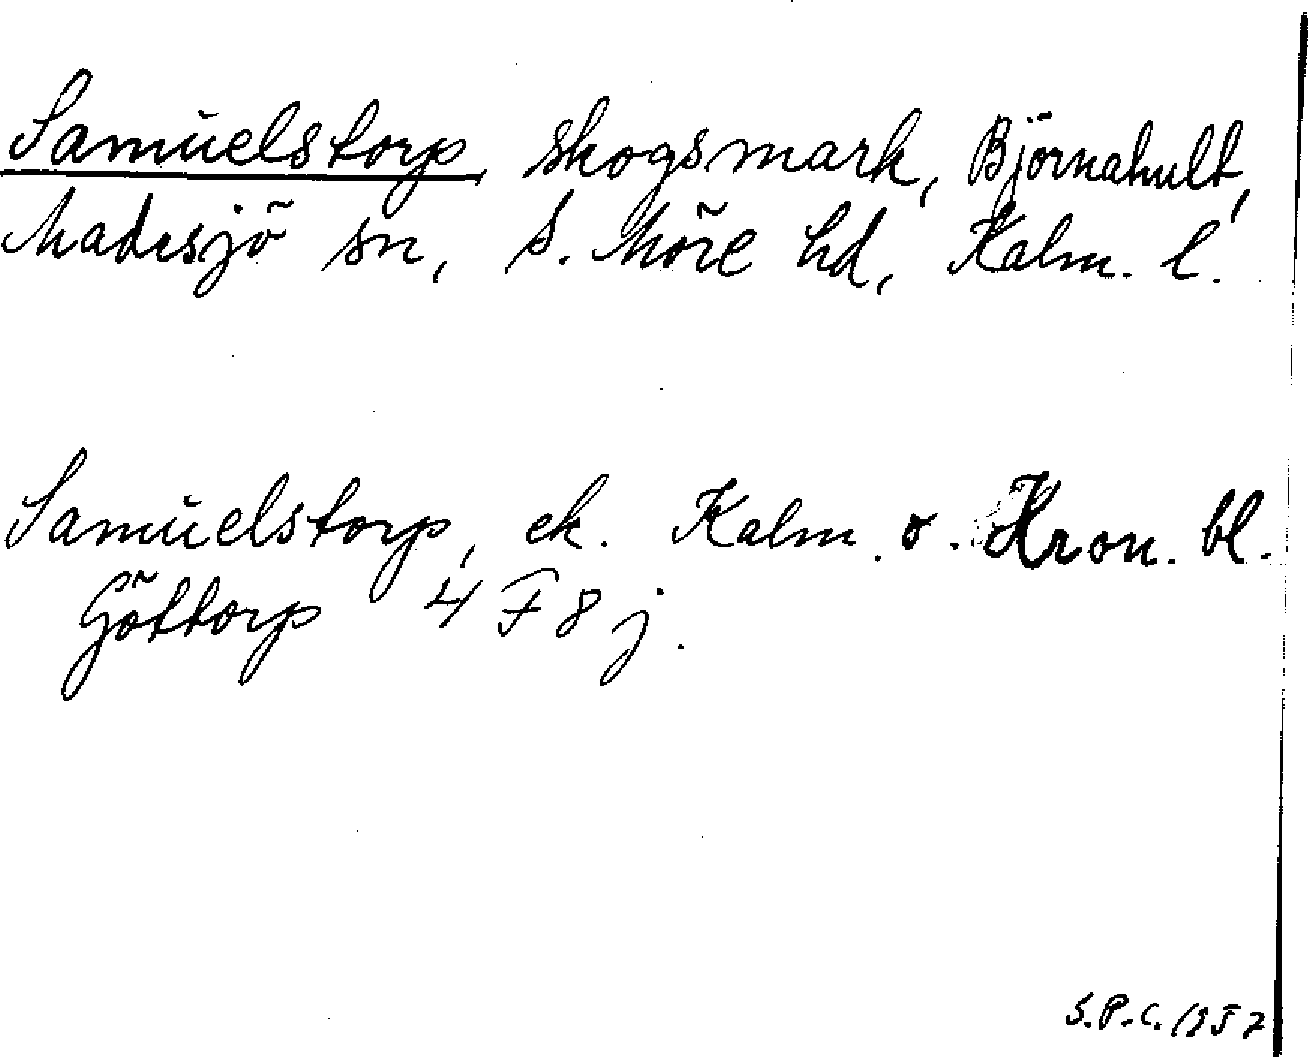 Samuelstorp, skogsmark, Björnahult,
Madesjö sn, S. Möre hd, Kalm. l.
Samuelstorp, ek. Kalm. o. Kron. bl.
Göttorp 4 F 8 j.
S.P.C. 1957